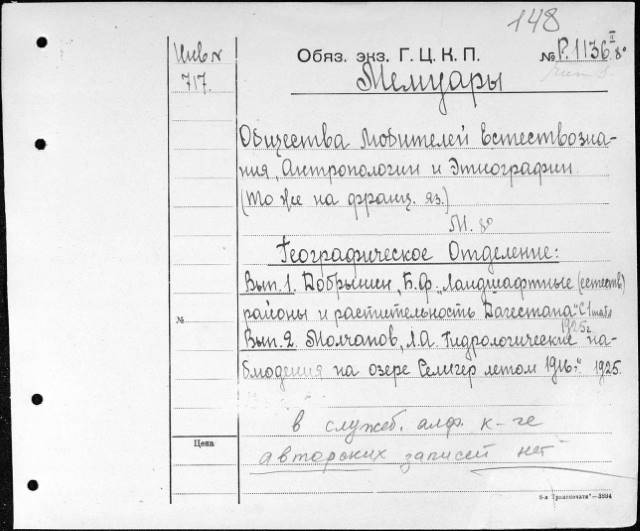 148
Инв №
717.
Обяз. экз. Г. Ц. К. П.
№ Р.1136 II 8°
Мемуары
Общества Любителей Естествозна-
ния, Антропологии и Этнографии.
(То же на франц. яз.)
М. 8°
Географическое Отделение:
Вып. 1. Добрынин, Б.Ф. „Ландшафтные (естеств)
районы и растительность Дагестана" С 1 табл
1925 г.
№
Вып. 2. Молчанов, Л.А. Гидрологические на-
блюдения на озере Селигер летом 1916г" 1925.
Цена
в служеб. алф. к-ге
авторских записей нет
6-я „Транспечати"—3994